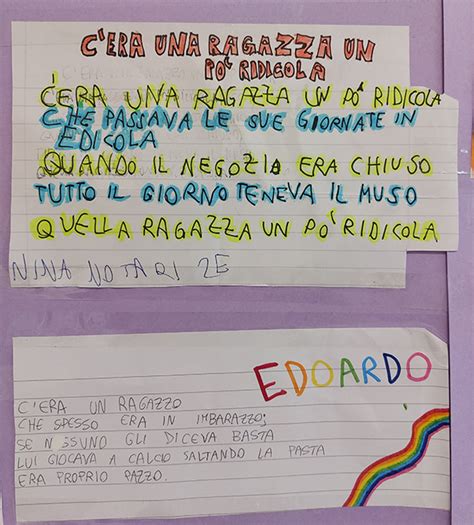 C'ERA UNA RAGAZZA UN
PO' RIDICOLA
C'ERA UNA RAGAZZA UN PO' RIDICOLA
CHE PASSAVA LE SUE GIORNATE IN
EDICOLA
QUANDO IL NEGOZIO ERA CHIUSO
TUTTO IL GIORNO TENEVA IL MUSO
QUELLA RAGAZZA UN PO' RIDICOLA
NINA NOTARI 2E
EDOARDO
C'ERA UN RAGAZZO
CHE SPESSO ERA IN IMBARAZZO;
SE NESSUNO GLI DICEVA BASTA
LUI GIOCAVA A CALCIO SALTANDO LA PASTA
ERA PROPRIO PAZZO.